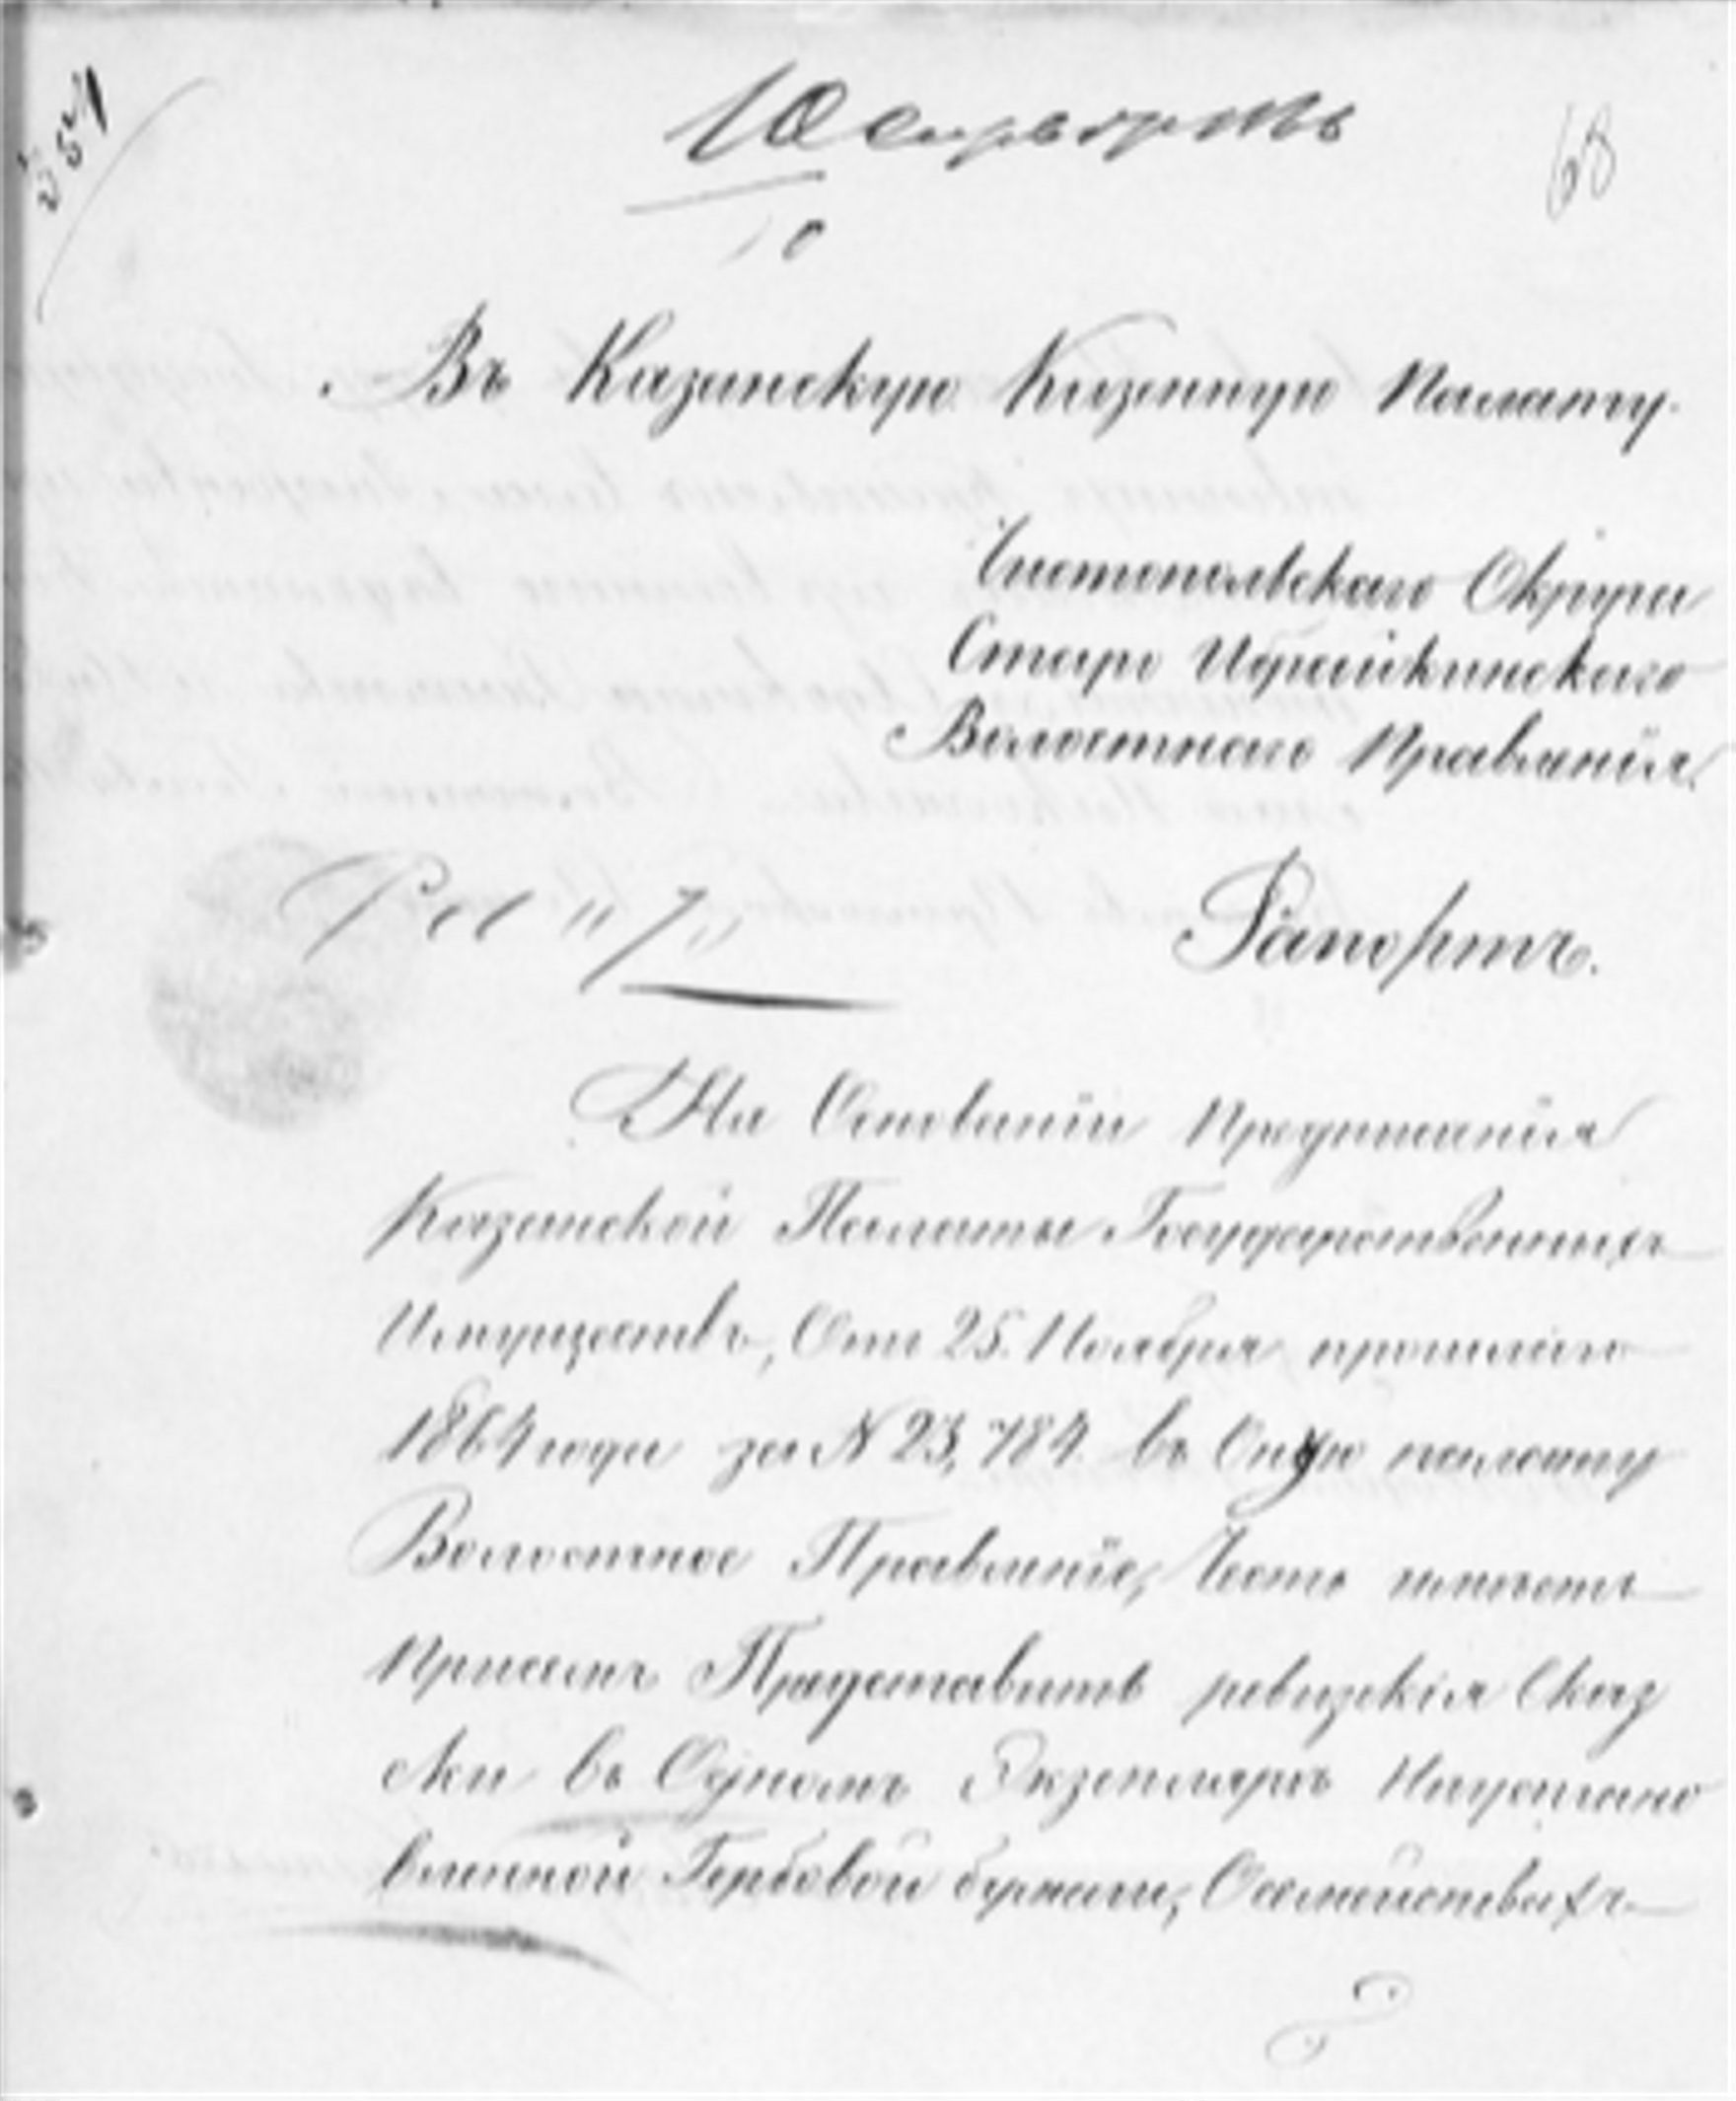 68
Въ Казанскую Казенную Палату.
Чистопольскаго Округа
Старо Ибрайкинскаго
Волостнаго Правленія.
Рапортъ.
На Основаніи Предписанія
Казанской Палаты Государственныхъ
Имуществъ, Отъ 25. Ноября прошлаго
1864 года за N 23,784. въ Оную палату
Волостное Правленіе, Честь имѣетъ
Присемъ Представить ревизскія Сказ
ки въ Одномъ Экземплярѣ Наустано
вленной Гербовой бумаги, Осемействахъ